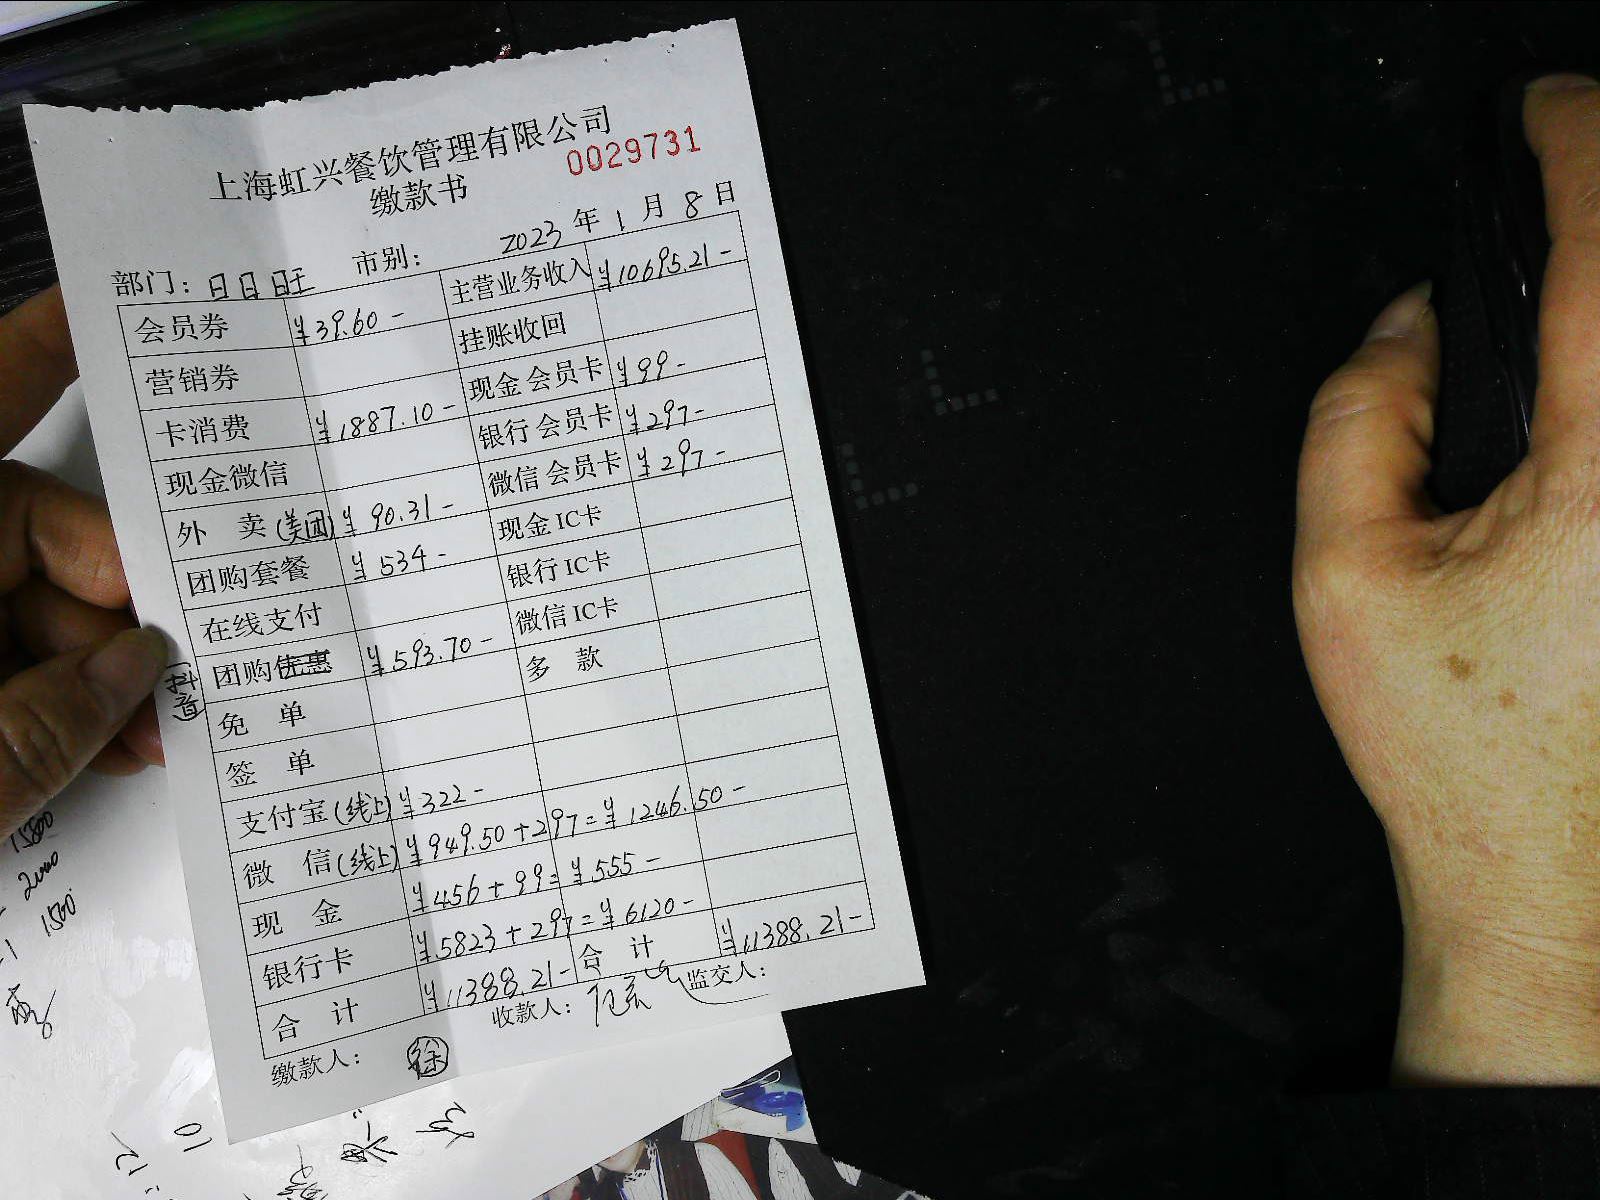 上海虹兴餐饮管理有限公司
缴款书
0029731
部门：日日旺 市别： 2023年1月8日
会员券 ¥39.60- 主营业务收入 ¥10695.21-
营销券 挂账收回
卡消费 ¥1887.10- 现金会员卡 ¥99-
现金微信 银行会员卡 ¥297-
外卖(美团) ¥90.31- 微信会员卡 ¥297-
团购套餐 ¥534- 现金IC卡
在线支付 银行IC卡
团购优惠 (抖音) ¥593.70- 微信IC卡
免单 多款
签单
支付宝(线上) ¥322-
微信(线上) ¥949.50+297=¥1246.50-
现金 ¥456+99=¥555-
银行卡 ¥5823+297=¥6120-
合计 ¥11388.21- 合计 ¥11388.21-
缴款人： 徐 收款人： 监交人：
15800
2000
1500
10
12